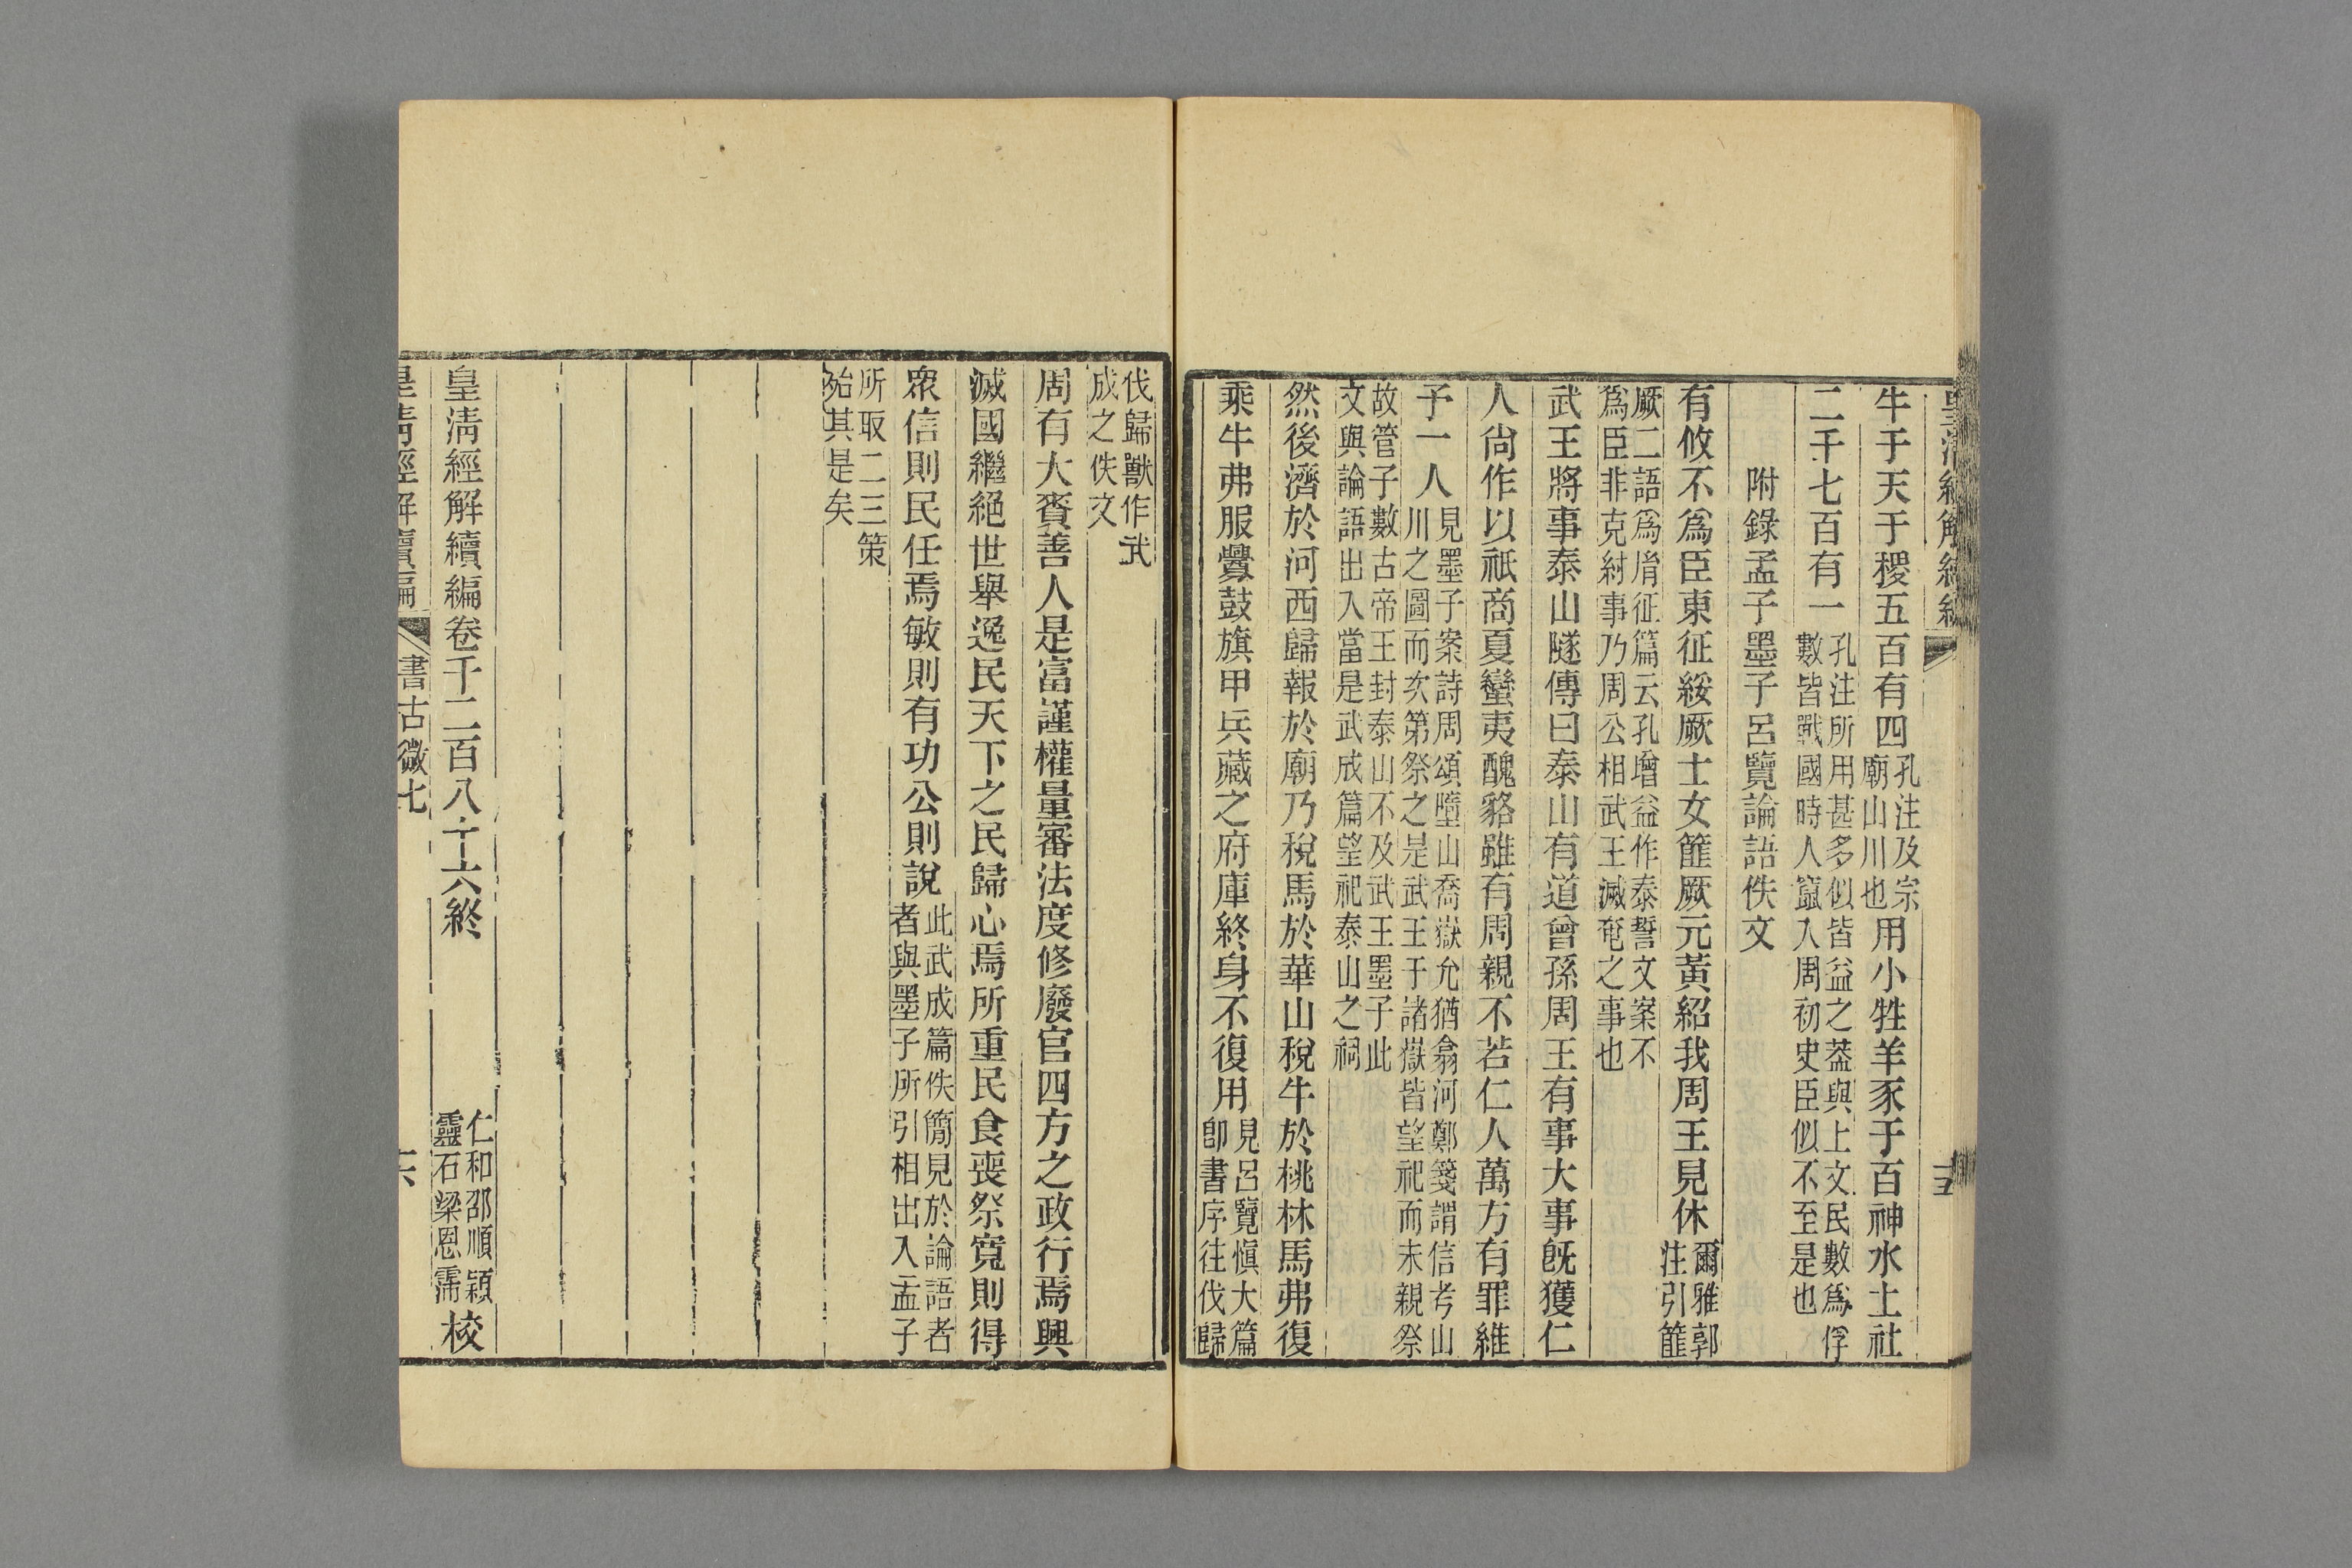 皇清經解續編
牛于天于稷五百有四孔注及宗廟山川也用小牲羊豕于百神水土社
二千七百有一孔注所用甚多似皆益之葢與上文民數爲俘數皆戰國時人竄入周初史臣似不至是也
附錄孟子墨子呂覽論語佚文
有攸不爲臣東征綏厥士女篚厥元黃紹我周王見休爾雅郭注引篚
厥二語爲胤征篇云孔增益作泰誓文案不爲臣非克紂事乃周公相武王滅奄之事也
武王將事泰山隧傳曰泰山有道曾孫周王有事大事旣獲仁
人尙作以祇商夏蠻夷醜貉雖有周親不若仁人萬方有罪維
予一人見墨子案詩周頌墮山喬嶽允猶翕河鄭箋謂信考山川之圖而次第祭之是武王于諸嶽皆望祀而未親祭
故管子數古帝王封泰山不及武王墨子此文與論語出入當是武成篇望祀泰山之祠
然後濟於河西歸報於廟乃稅馬於華山稅牛於桃林馬弗復
乘牛弗服釁鼓旗甲兵藏之府庫終身不復用見呂覽愼大篇卽書序往伐歸
伐歸獸作武成之佚文
周有大賚善人是富謹權量審法度修廢官四方之政行焉興
滅國繼絕世舉逸民天下之民歸心焉所重民食喪祭寬則得
衆信則民任焉敏則有功公則說此武成篇佚簡見於論語者者與墨子所引相出入孟子
所取二三策殆其是矣
皇淸經解續編卷千二百八十六終
仁和邵順穎
靈石梁恩霈
校
皇淸經解續編
書古微七